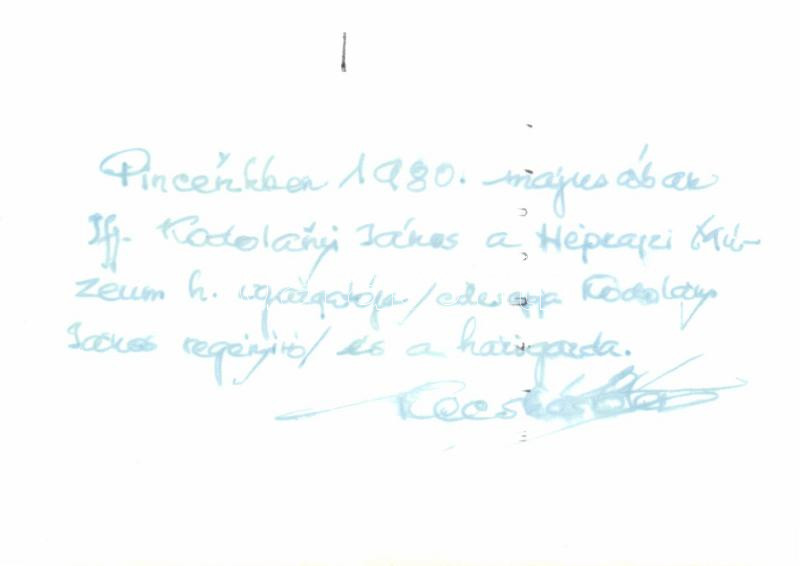 Pincénkben 1980. májusában
Ifj. Kodolányi János a Néprajzi Mú-
zeum h. igazgatója /édesapja Kodolányi
János regényíró/ és a házigazda.